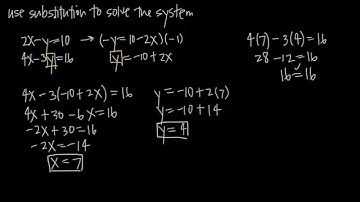 use substitution to solve the system
2x-y=10 → (-y=10-2x)(-1)
4x-3y=16 y=-10+2x
4x-3(-10+2x)=16
4x+30-6x=16
-2x+30=16
-2x=-14
x=7
y=-10+2(7)
y=-10+14
y=4
4(7)-3(4)=16
28-12=16
16=16